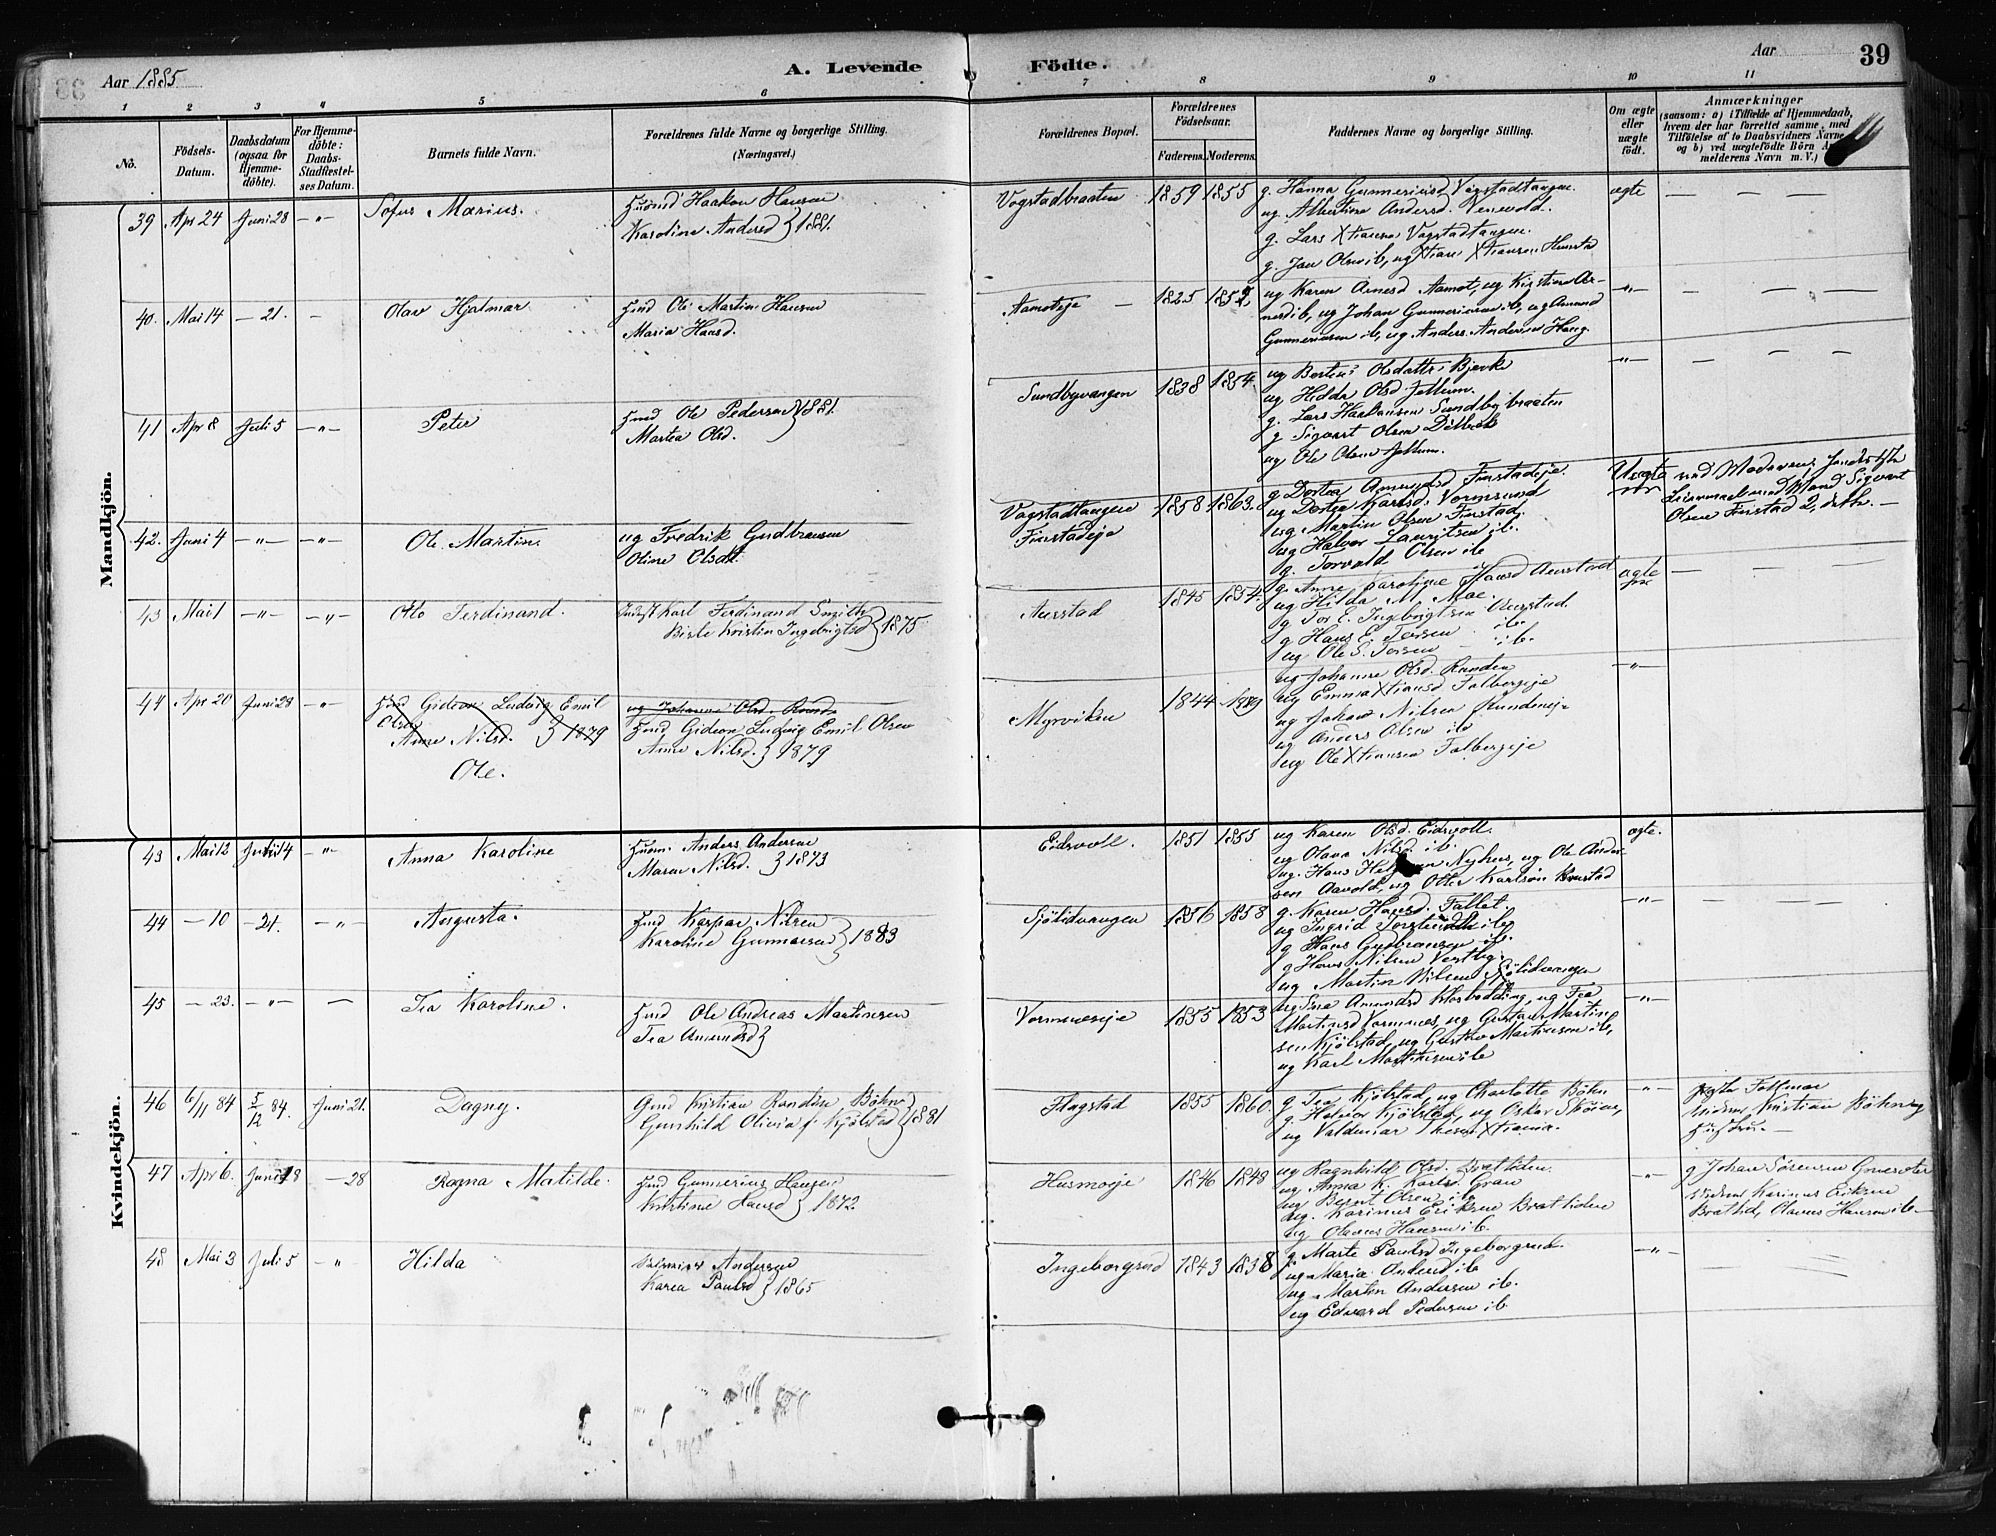 Aar 1885.
A. Levende Födte.
Aar
39
1 2 3 4 5 6 7 8 9 10 11
No.
Födsels-Datum.
Daabsdatum (ogsaa for Hjemmedöbte).
For Hjemmedöbte: Daabs-Stadfestelses Datum.
Barnets fulde Navn.
Forældrenes fulde Navne og borgerlige Stilling. (Næringsvei.)
Forældrenes Bopæl.
Forældrenes Födselsaar.
Faderens. Moderens.
Faddernes Navne og borgerlige Stilling.
Om ægte eller uægte födt.
Anmærkninger
(saasom: a) i Tilfælde af Hjemmedaab,
hvem der har forrettet samme, med
Tilföielse af to Daabsvidners Navne
og b) ved uægtefödte Börn An-
melderens Navn m. V.)
Mandkjön.
39 Apr 24 Juni 28 – " – Sofus Marius.
Haakon Hansen
Karoline Andersd } 1881.
Vogstadbraaten 1859 1855
g. Hanna Gunneriusd Vogstadtangen
ug Albertine Andersd.
g. Lars Xtiansen Vogstadtangen.
g. Jan Olsen ib, ug Xtian Xtiansen
ægte – – –
40. Mai 14 – 21. – Olav Hjalmar
Hmd Ole Martin Hansen
Maria Hansd.
Aamoteje – 1825 1859
ug Karen Arnesd Aamot, ug Kirstine Ar-
nesd ib, ug Johan Gunneriusen ib, ug Amund
Gunneriusen ib, ug Anders Andersen Haug.
– " – – – –
41 Apr 8 Juli 5 – " – Peter
Hmd Ole Pedersen } 1881.
Martea Olsd.
Sundbyvangen 1838 1854.
ug Olsdatter Bjerke
ug Hilda Olsd Jellum.
g. Lars Haakensen Sundbybraaten
g Sigvart Olsen
ug Ole Olsen Jellum.
– " – – – –
42. Juni 4 – " – – " – Ole Martin.
ug Fredrik Gudbransen
Oline Olsdt.
Vogstadtangen
Finstadeje
1858 1863.
g Dortea Amundsd Finstadeje.
ug Dortea Karlsd. Vormsund
ug. Martin Olsen Finstad.
ug Halvor Lauritsen ib.
g. Torvald Olsen ib
Uægte
ved Moderens
Mand Sigvart
Olsen Finstad 2,
43 Mai 1 – " – – " – Otto Ferdinand.
Karl Ferdinand Smith
Kristin Ingebrigtsd } 1875
Aurstad 1845 1854.
g. Anne Karoline Hansd Aurstad
ug Hilda M. Moe.
g Tor E. Ingebrigtsen Aurstad.
g Hans E. Torsen ib.
ug Ole S. Torsen – ib.
ægte – – –
44 Apr 20 Juni 28 – " –
Hmd Gideon Ludvig Emil
Olsen
Anne Nilsd. } 1879
Ole.
ug Johanne Olsd. Runden
Hmd Gideon Ludvig Emil Olsen
Anne Nilsd. } 1879
Myrviken 1844
ug Johanne Olsd. Runden
ug Emma Xtiansd Falbergeje
ug Johan Nilsen Rundeneje
ug Anders Olsen ib
ug Ole Xtiansen Falbergeje
– " –
Kvindekjön.
43 Mai 12 Juni 14 – " – Anna Karoline
Anders Andersen
Maren Nilsd. } 1873
Eidsvoll. 1851 1855
ug Karen Olsd. Eidsvoll.
ug Olava Nilsd. ib.
ug. Hans Nyhus, ug Ole Ander-
sen Aavold, ug Otter Karlsön
ægte.
44 – 10 – 21. – " – Augusta.
Hmd Kaspar Nilsen
Karoline Gunnarsd } 1883
Sjölidvangen 1856 1858
g. Karen Hansd. Fallet.
ug Ingrid ib
g Hans Gudbransen ib.
g Hans Nilsen Vestby.
ug Martin Nilsen Sjölidvangen
– " –
45 – 23. – " – – Tea Karoline.
Hmd Ole Andreas Martinsen
Tea Amundsd }
Vormneseje 1855 1853
ug Amundsd ug Tea
Martinsd Vormnes, ug Gustav Martin-
sen Kjölstad, ug Gustav Martinsen ib,
ug Karl Martinsen ib
– " –
46 6/11 84 5/12 84. Juni 21. Dagny.
Gmd Kristian Böhn
Gunhild Olivia f. Kjölstad } 1881
Flagstad 1855 1860.
g. Tea Kjölstad, ug Charlotte Böhn
g. Halvor Kjölstad, ug Oskar Skoien,
ug Valdemar Xtiania.
– " –
Kristian Böhn og
Hustru. –
47 Apr 6. Juni 18 – 28 Ragna Matilde.
Hmd Gunnerius Hansen
Kristine Hansd } 1872.
Husmoeje 1846 1848
ug Ragnhild Olsd. Bratliden
ug Anna K. Karlsd. Grau
ug Bernt Olsen ib
ug. Karinus Eriksen Bratliden
ug Olaus Hansen ib.
– " –
g Johan Sörensen
Karinus Eriksen
Bratlid, Olaus Hansen ib –
48 Mai 3 Juli 5 – " Hilda
Andersen
Karen Paulsd } 1865
Ingeborgrud 1843 1838
g Marte Paulsd Ingeborgrud.
ug Maria Andersd ib
ug Martin Andersen ib.
ug Edvard Pedersen ib
– " –